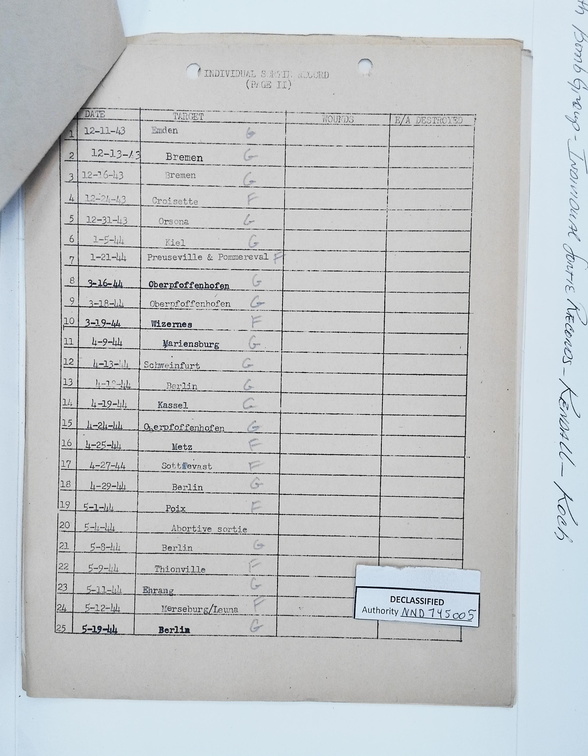 INDIVIDUAL SORTIE RECORD
(PAGE II)
DATE TARGET WOUNDS E/A DESTROYED
1 12-11-43 Emden G
2 12-13-43 Bremen G
3 12-16-43 Bremen G
4 12-24-43 Croisette F
5 12-31-43 Orsona G
6 1-5-44 Kiel G
7 1-21-44 Preuseville & Pommereval F
8 3-16-44 Oberpfoffenhofen G
9 3-18-44 Oberpfoffenhofen G
10 3-19-44 Wizernes F
11 4-9-44 Mariensburg G
12 4-13-44 Schweinfurt G
13 Berlin G
14 4-19-44 Kassel G
15 4-24-44 Oberpfoffenhofen G
16 4-25-44 Metz F
17 4-27-44 Sottevast F
18 4-29-44 Berlin G
19 5-1-44 Poix F
20 5-4-44 Abortive sortie
21 5-8-44 Berlin G
22 5-9-44 Thionville F
23 5-11-44 Ehrang G
24 5-12-44 Merseburg/Leuna F
25 5-19-44 Berlin G
DECLASSIFIED
Authority NND 745005
th Bomb Group - Individual Sortie Records - Kendall - Koch